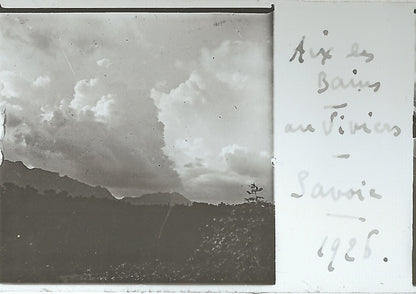 Aix les
Bains
au Viviers
Savoie
1926.